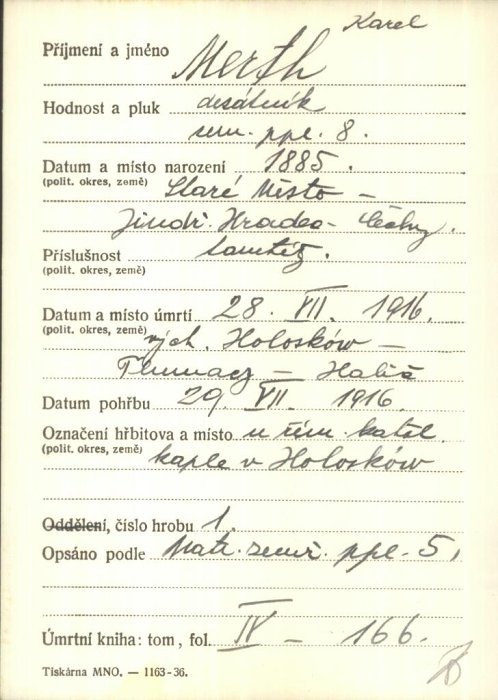 Karel
Příjmení a jméno Merth
Hodnost a pluk desátník
zem. ppl. 8.
Datum a místo narození 1885.
(polit. okres, země) Staré Město –
Jindř. Hradec – Čechy.
Příslušnost tamtéž.
(polit. okres, země)
Datum a místo úmrtí 28. VII. 1916.
(polit. okres, země) vých. Holosków –
Tlumacz – Halič
Datum pohřbu 29. VII. 1916.
Označení hřbitova a místo u řím. katol.
(polit. okres, země) kaple v Holosków
Oddělení, číslo hrobu 1.
Opsáno podle Matr. zemř. ppl. 5,
Úmrtní kniha: tom, fol. IV – 166.
Tiskárna MNO. — 1163-36.